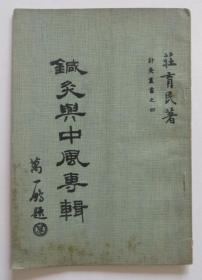 莊育民著
針灸叢書之四
鍼灸與中風專輯
萬一鵬題